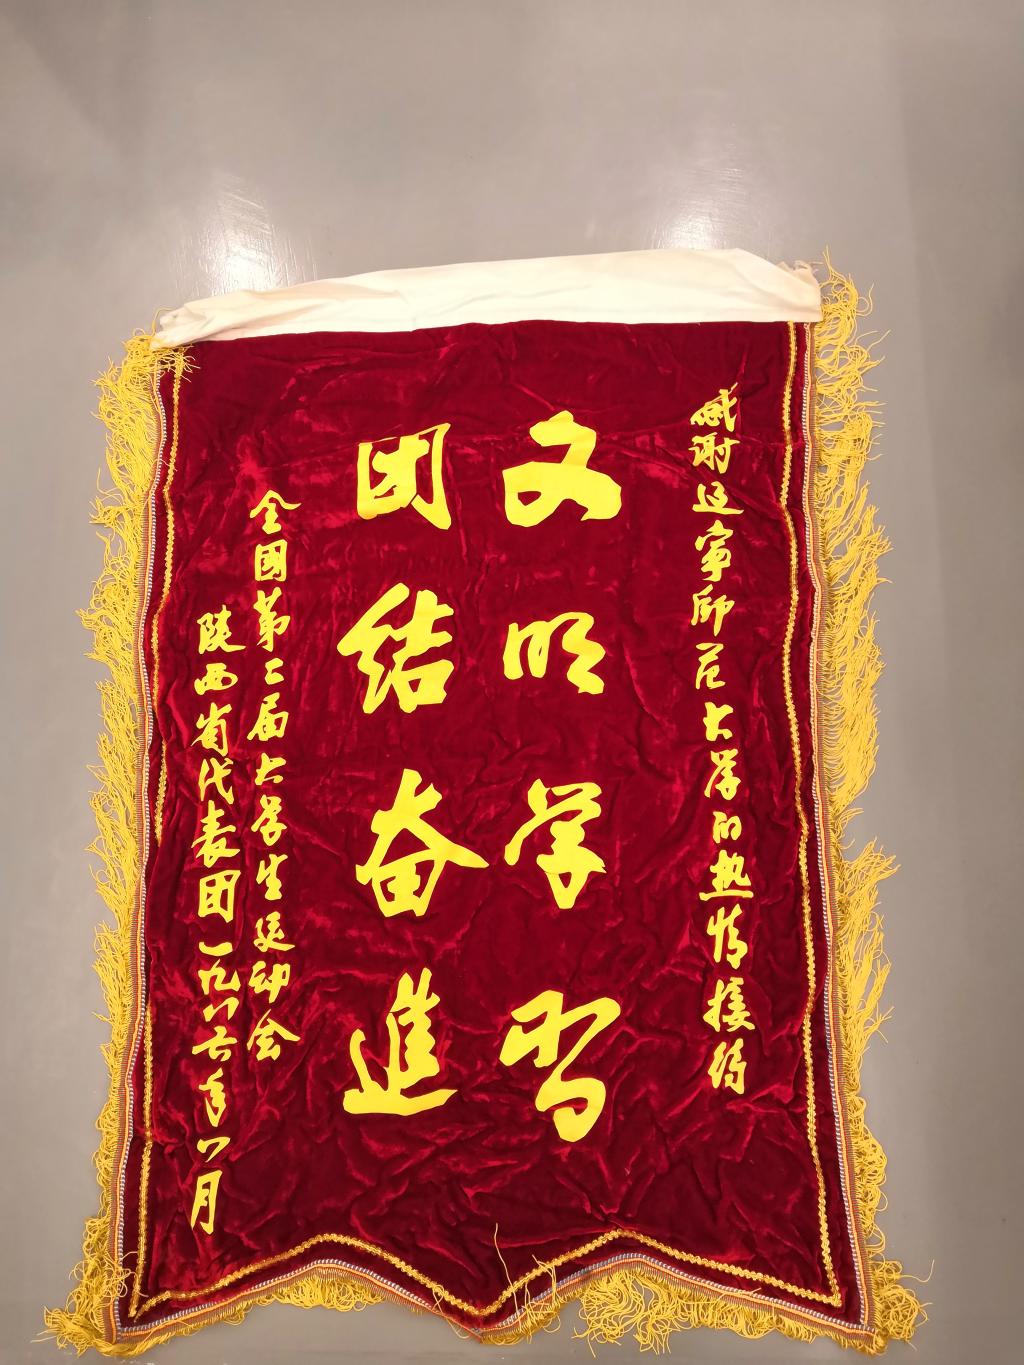 感谢辽宁师范大学的热情接待
文明学习
团结奋進
全國第二届大学生运动会
陕西省代表团一九八六年八月